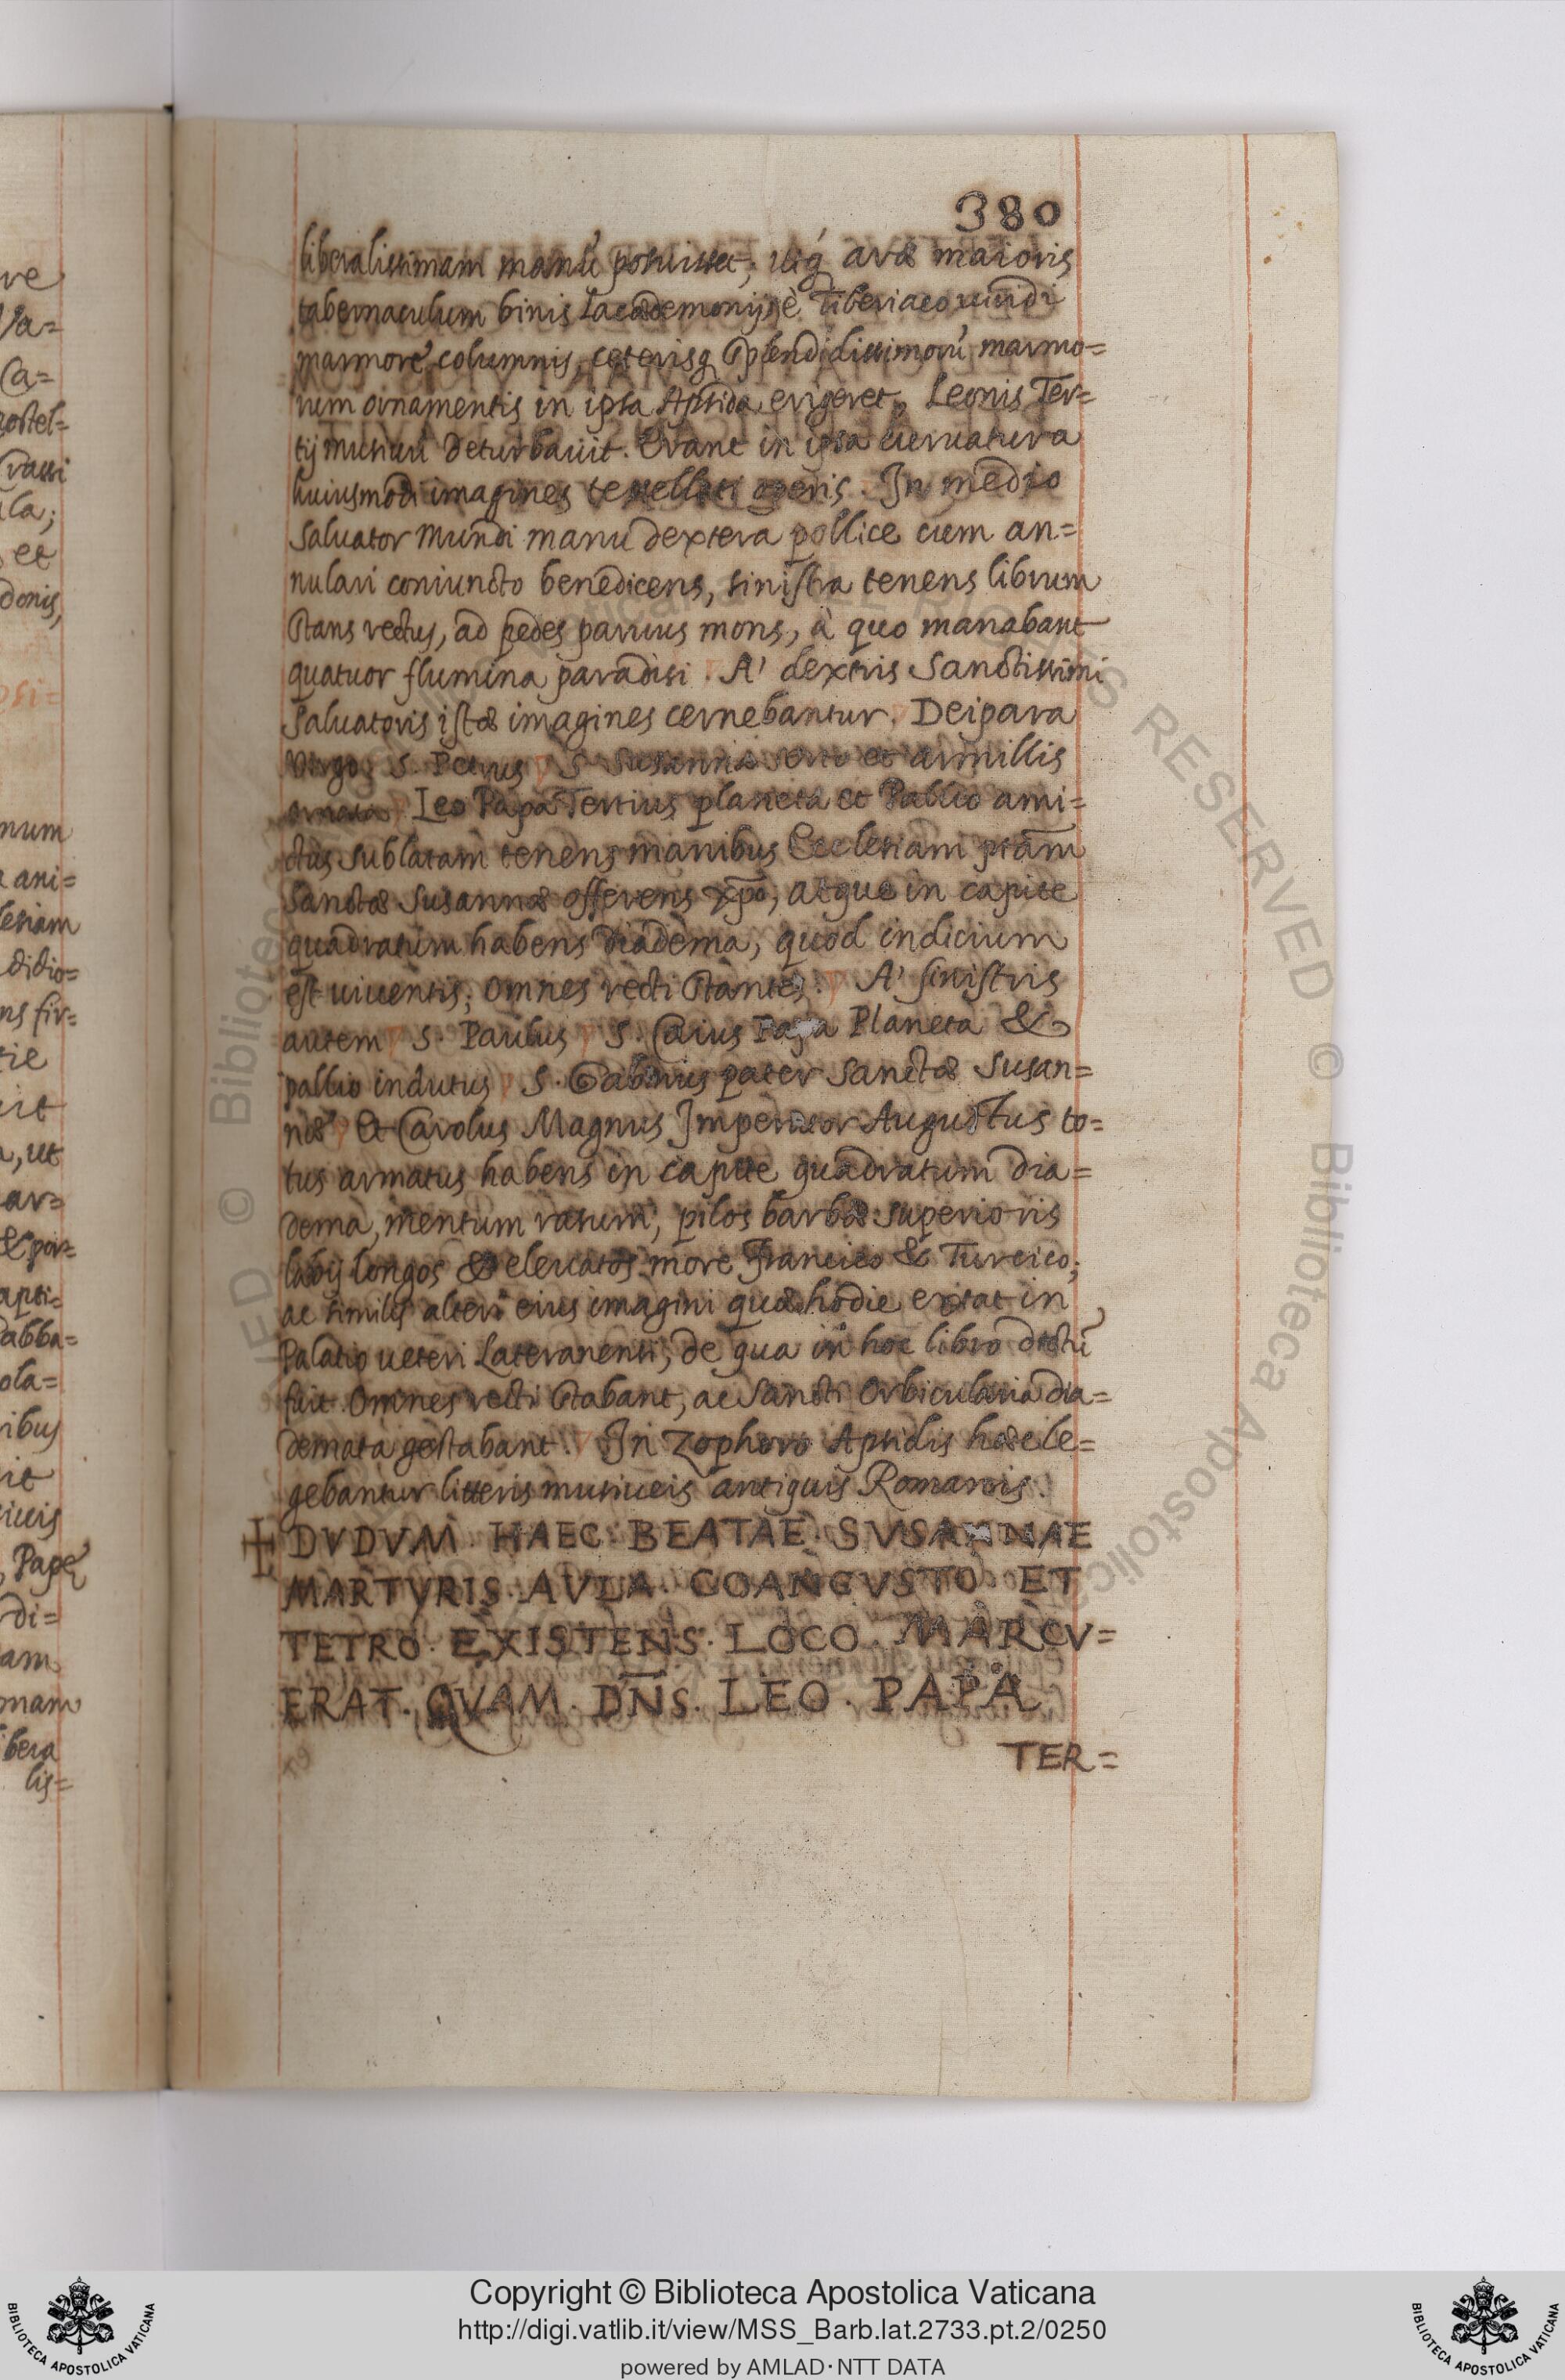 380
liberalissimam manū posuisset; utq́ aræ maioris
tabernaculum binis Lacædemonijs è Tiberiaco uiridi
marmore columnis, ceterisq́ splendidissimorū marmo=
rum ornamentis in ipsa Apsida erigeret, Leonis Ter=
tij musiuū deturbauit. Erant in ipsa curuatura
huiusmodi imagines tessellati operis. In medio
Saluator Mundi manu dextera pollice cum an=
nulari coniuncto benedicens, sinistra tenens librum
stans rectus, ad pedes paruus mons, à quo manabant
quatuor flumina paradisi. A' dextris Sanctissimi
Saluatoris istæ imagines cernebantur. Deipara
Virgo, S. Petrus S. Susanna serto et armillis
ornata Leo Papa Tertius planeta et Pallio ami=
ctus sublatam tenens manibus Ecclesiam ptām
Sanctæ Susannæ offerens xp̄o, atque in capite
quadratum habens diadema, quod indicium
est uiuentis; omnes recti stantes. A' sinistris
autem S. Paulus S. Caius Papa Planeta &
pallio indutus S. Gabinus pater Sanctæ Susan=
næ Et Carolus Magnus Imperator Augustus to=
tus armatus habens in capite quadratum dia=
dema, mentum rasum, pilos barbæ superioris
labij longos & eleuatos more Francico & Turcico;
ac similis alteri eius imagini quæ hodie extat in
Palatio ueteri Lateranensi, de qua in hoc libro dictū
fuit. Omnes recti stabant, ac Sancti Orbicularia dia=
demata gestabant. In Zophoro Apsidis hæc le=
gebantur litteris musiueis antiquis Romanis.
✝ DVDVM · HAEC · BEATAE · SVSANNAE
MARTYRIS · AVLA · COANGVSTO · ET
TETRO · EXISTENS · LOCO · MARCV=
ERAT · QVAM · DN̄S · LEO · PAPA
TER=
ve
Va=
Ca=
et
donis,
num
ani=
lesiam
didio=
ns fir=
tie
, ut
ar=
& por=
abba=
ola=
ribus
it
Papę
di=
am
onam
bera
lis=
RIGHTS RESERVED © Biblioteca Apostolica
Copyright © Biblioteca Apostolica Vaticana
http://digi.vatlib.it/view/MSS_Barb.lat.2733.pt.2/0250
powered by AMLAD·NTT DATA
BIBLIOTECA APOSTOLICA VATICANA
BIBLIOTECA APOSTOLICA VATICANA